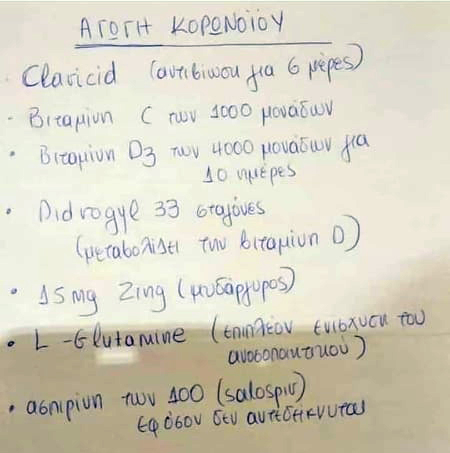 ΑΓΩΓΗ ΚΟΡΩΝΟΪΟΥ
· Claricid (αντιβίωση για 6 μέρες)
· Βιταμίνη C των 1000 μονάδων
· Βιταμίνη D3 των 4000 μονάδων για
10 ημέρες
· Didrogyl 33 σταγόνες
(μεταβολίζει την βιταμίνη D)
· 15mg Zing (ψυδάργυρος)
· L-Glutamine (επιπλέον ενίσχυση του
ανοσοποιητικού)
· ασπιρίνη των 100 (salospir)
εφόσον δεν αντεδείκνυται